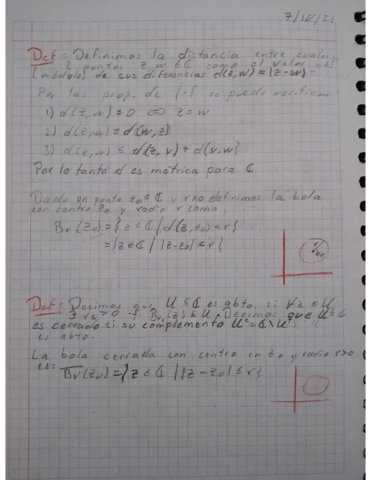 Def = Definimos la distancia entre
2 puntos z, w ∈ ℂ como el valor abs
(módulo) de sus diferencias d(z,w) = |z-w|
Por las prop. de |·| se puede verificar
1) d(z,w) = 0 ⇔ z = w
2) d(z,w) = d(w,z)
3) d(z,w) ≤ d(z,v) + d(v,w)
Por lo tanto d es metrica para ℂ
Dado un punto z₀ ∈ ℂ y r>0 definimos la bola
con centro z₀ y radio r como
Br(z₀) = {z ∈ ℂ | d(z,z₀) < r}
= {z ∈ ℂ | |z-z₀| < r}
r
z₀
Def = Decimos que U ⊆ ℂ es abto. si ∀z ∈ U
∃ r_z > 0 Br_z(z) ⊆ U. Decimos que U ⊆ ℂ
es cerrado si su complemento Uᶜ = ℂ\U
es abto.
La bola cerrada con centro en z₀ y radio r>0
es:
Br(z₀) = {z ∈ ℂ | |z - z₀| ≤ r}